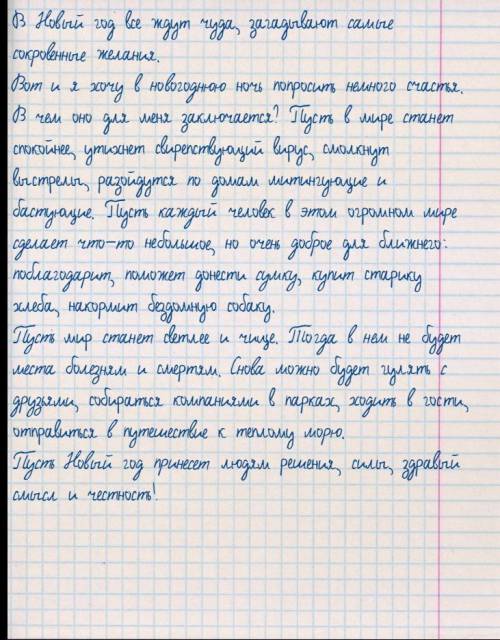 В Новый год все ждут чуда, загадывают самые
сокровенные желания.
Вот и я хочу в новогоднюю ночь попросить немного счастья.
В чем оно для меня заключается? Пусть в мире станет
спокойнее, утихнет свирепствующий вирус, смолкнут
выстрелы, разойдутся по домам митингующие и
бастующие. Пусть каждый человек в этом огромном мире
сделает что-то небольшое, но очень доброе для ближнего:
поблагодарит, поможет донести сумку, купит старику
хлеба, накормит бездомную собаку.
Пусть мир станет светлее и чище. Тогда в нем не будет
места болезням и смертям. Снова можно будет гулять с
друзьями, собираться компаниями в парках, ходить в гости,
отправиться в путешествие к теплому морю.
Пусть Новый год принесет людям решения, силы, здравый
смысл и честность!